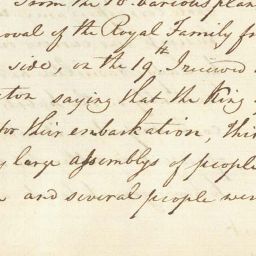 From the 10. various plan
oval of the Royal Family f
side, on the 19th. I received
ton saying that the King
for their embarkation, this
large assemblys of people
and several people wer